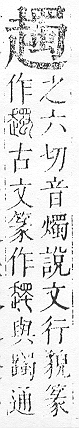 之六切音燭說文行貌篆
作古文篆作與躅通